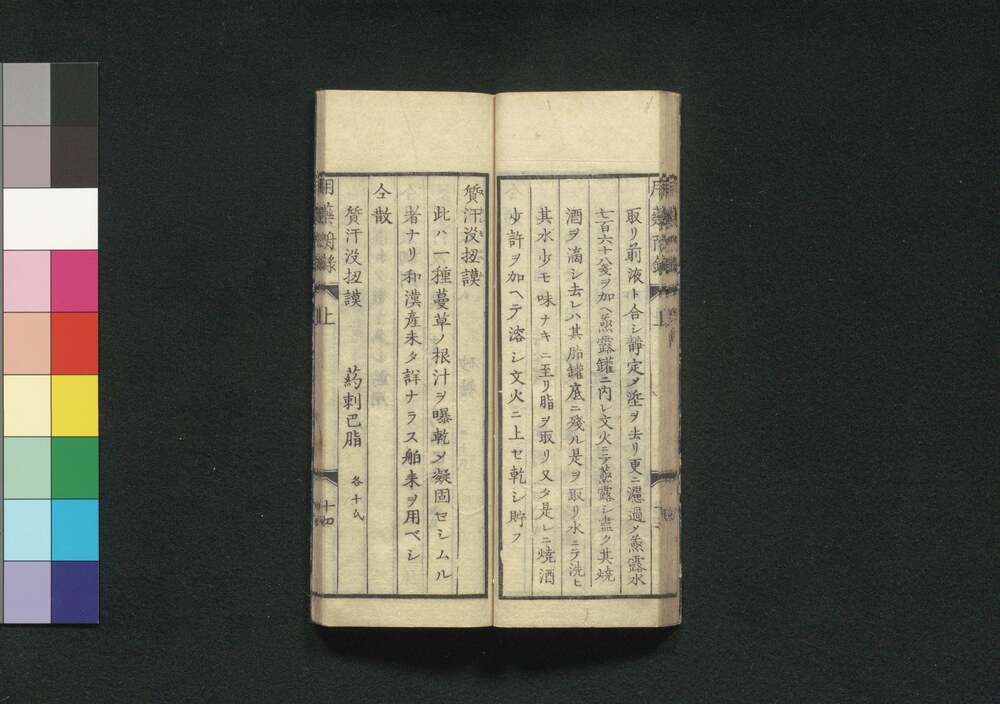 取リ前液ト合シ靜定〆滓ヲ去リ更ニ濾過〆蒸露水
七百六十八戔ヲ加ヘ蒸露罐ニ内レ文火ニテ蒸露シ盡ク其燒
酒ヲ滴シ去レハ其脂罐底ニ殘ル是ヲ取リ水ニテ洗ヒ
其水少モ味ナキニ至リ脂ヲ取リ又タ是レニ燒酒
少許ヲ加ヘテ溶シ文火ニ上セ乾シ貯フ
質汗没扭謨
此ハ一種蔓草ノ根汁ヲ曝乾〆凝固セシムル
者ナリ和漢産未タ詳ナラス舶来ヲ用ベシ
仝散
質汗没扭謨 葯剌巴脂 各十戔
上
十四